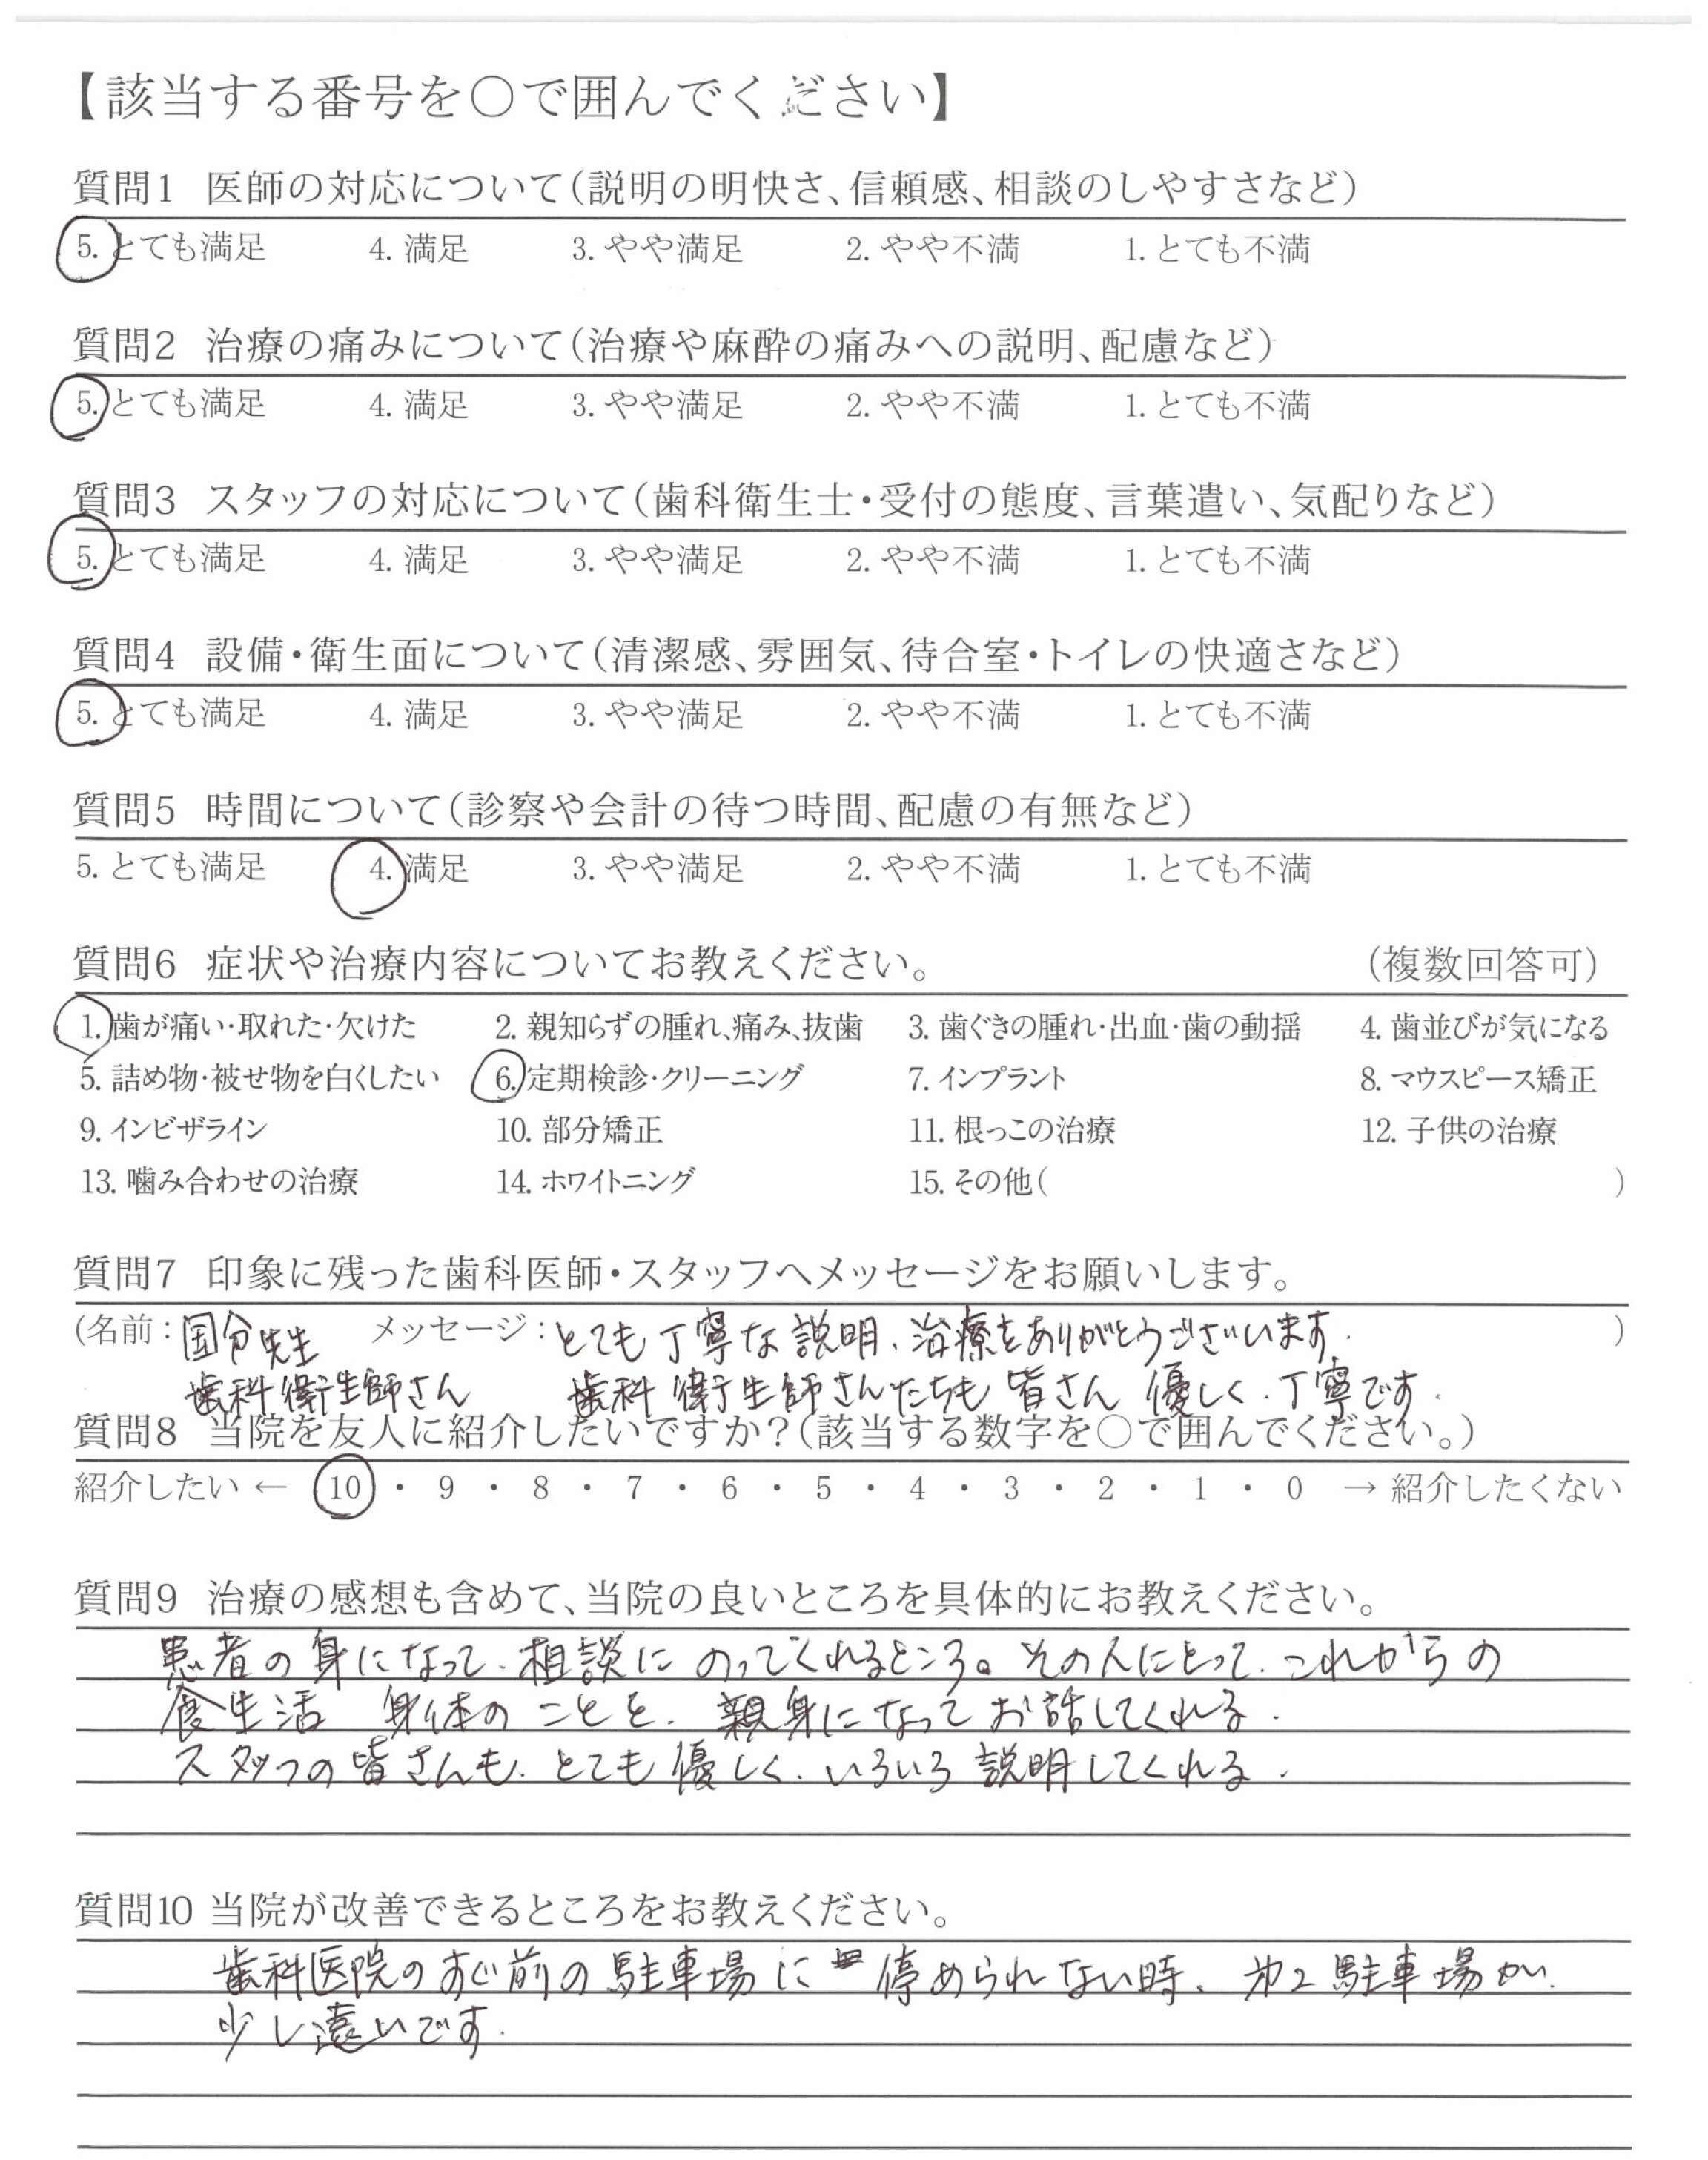 【該当する番号を○で囲んでください】
質問1 医師の対応について(説明の明快さ、信頼感、相談のしやすさなど)
5. とても満足 4. 満足 3. やや満足 2. やや不満 1. とても不満
質問2 治療の痛みについて(治療や麻酔の痛みへの説明、配慮など)
5. とても満足 4. 満足 3. やや満足 2. やや不満 1. とても不満
質問3 スタッフの対応について(歯科衛生士・受付の態度、言葉遣い、気配りなど)
5. とても満足 4. 満足 3. やや満足 2. やや不満 1. とても不満
質問4 設備・衛生面について(清潔感、雰囲気、待合室・トイレの快適さなど)
5. とても満足 4. 満足 3. やや満足 2. やや不満 1. とても不満
質問5 時間について(診察や会計の待つ時間、配慮の有無など)
5. とても満足 4. 満足 3. やや満足 2. やや不満 1. とても不満
質問6 症状や治療内容についてお教えください。 (複数回答可)
1. 歯が痛い・取れた・欠けた 2. 親知らずの腫れ、痛み、抜歯 3. 歯ぐきの腫れ・出血・歯の動揺 4. 歯並びが気になる
5. 詰め物・被せ物を白くしたい 6. 定期検診・クリーニング 7. インプラント 8. マウスピース矯正
9. インビザライン 10. 部分矯正 11. 根っこの治療 12. 子供の治療
13. 噛み合わせの治療 14. ホワイトニング 15. その他( )
質問7 印象に残った歯科医師・スタッフへメッセージをお願いします。
(名前:国分先生 メッセージ:とても丁寧な説明、治療をありがとうございます. )
歯科衛生師さん 歯科衛生師さんたちも皆さん優しく、丁寧です.
質問8 当院を友人に紹介したいですか?(該当する数字を○で囲んでください。)
紹介したい ← 10 ・ 9 ・ 8 ・ 7 ・ 6 ・ 5 ・ 4 ・ 3 ・ 2 ・ 1 ・ 0 → 紹介したくない
質問9 治療の感想も含めて、当院の良いところを具体的にお教えください。
患者の身になって、相談にのってくれるところ。その人にとって、これからの
食生活 身体のことを、親身になってお話してくれる.
スタッフの皆さんも、とても優しく、いろいろ説明してくれる.
質問10 当院が改善できるところをお教えください。
歯科医院のすぐ前の駐車場に停められない時、第2駐車場が、
少し遠いです.